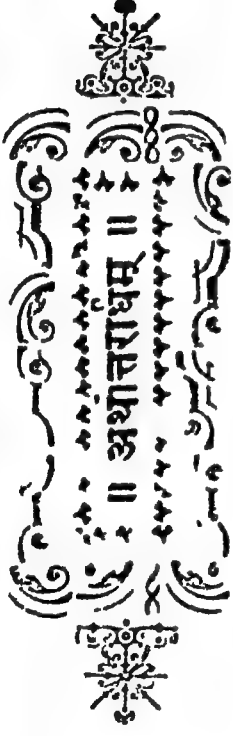 ॥ अथोत्तरार्धम् ॥